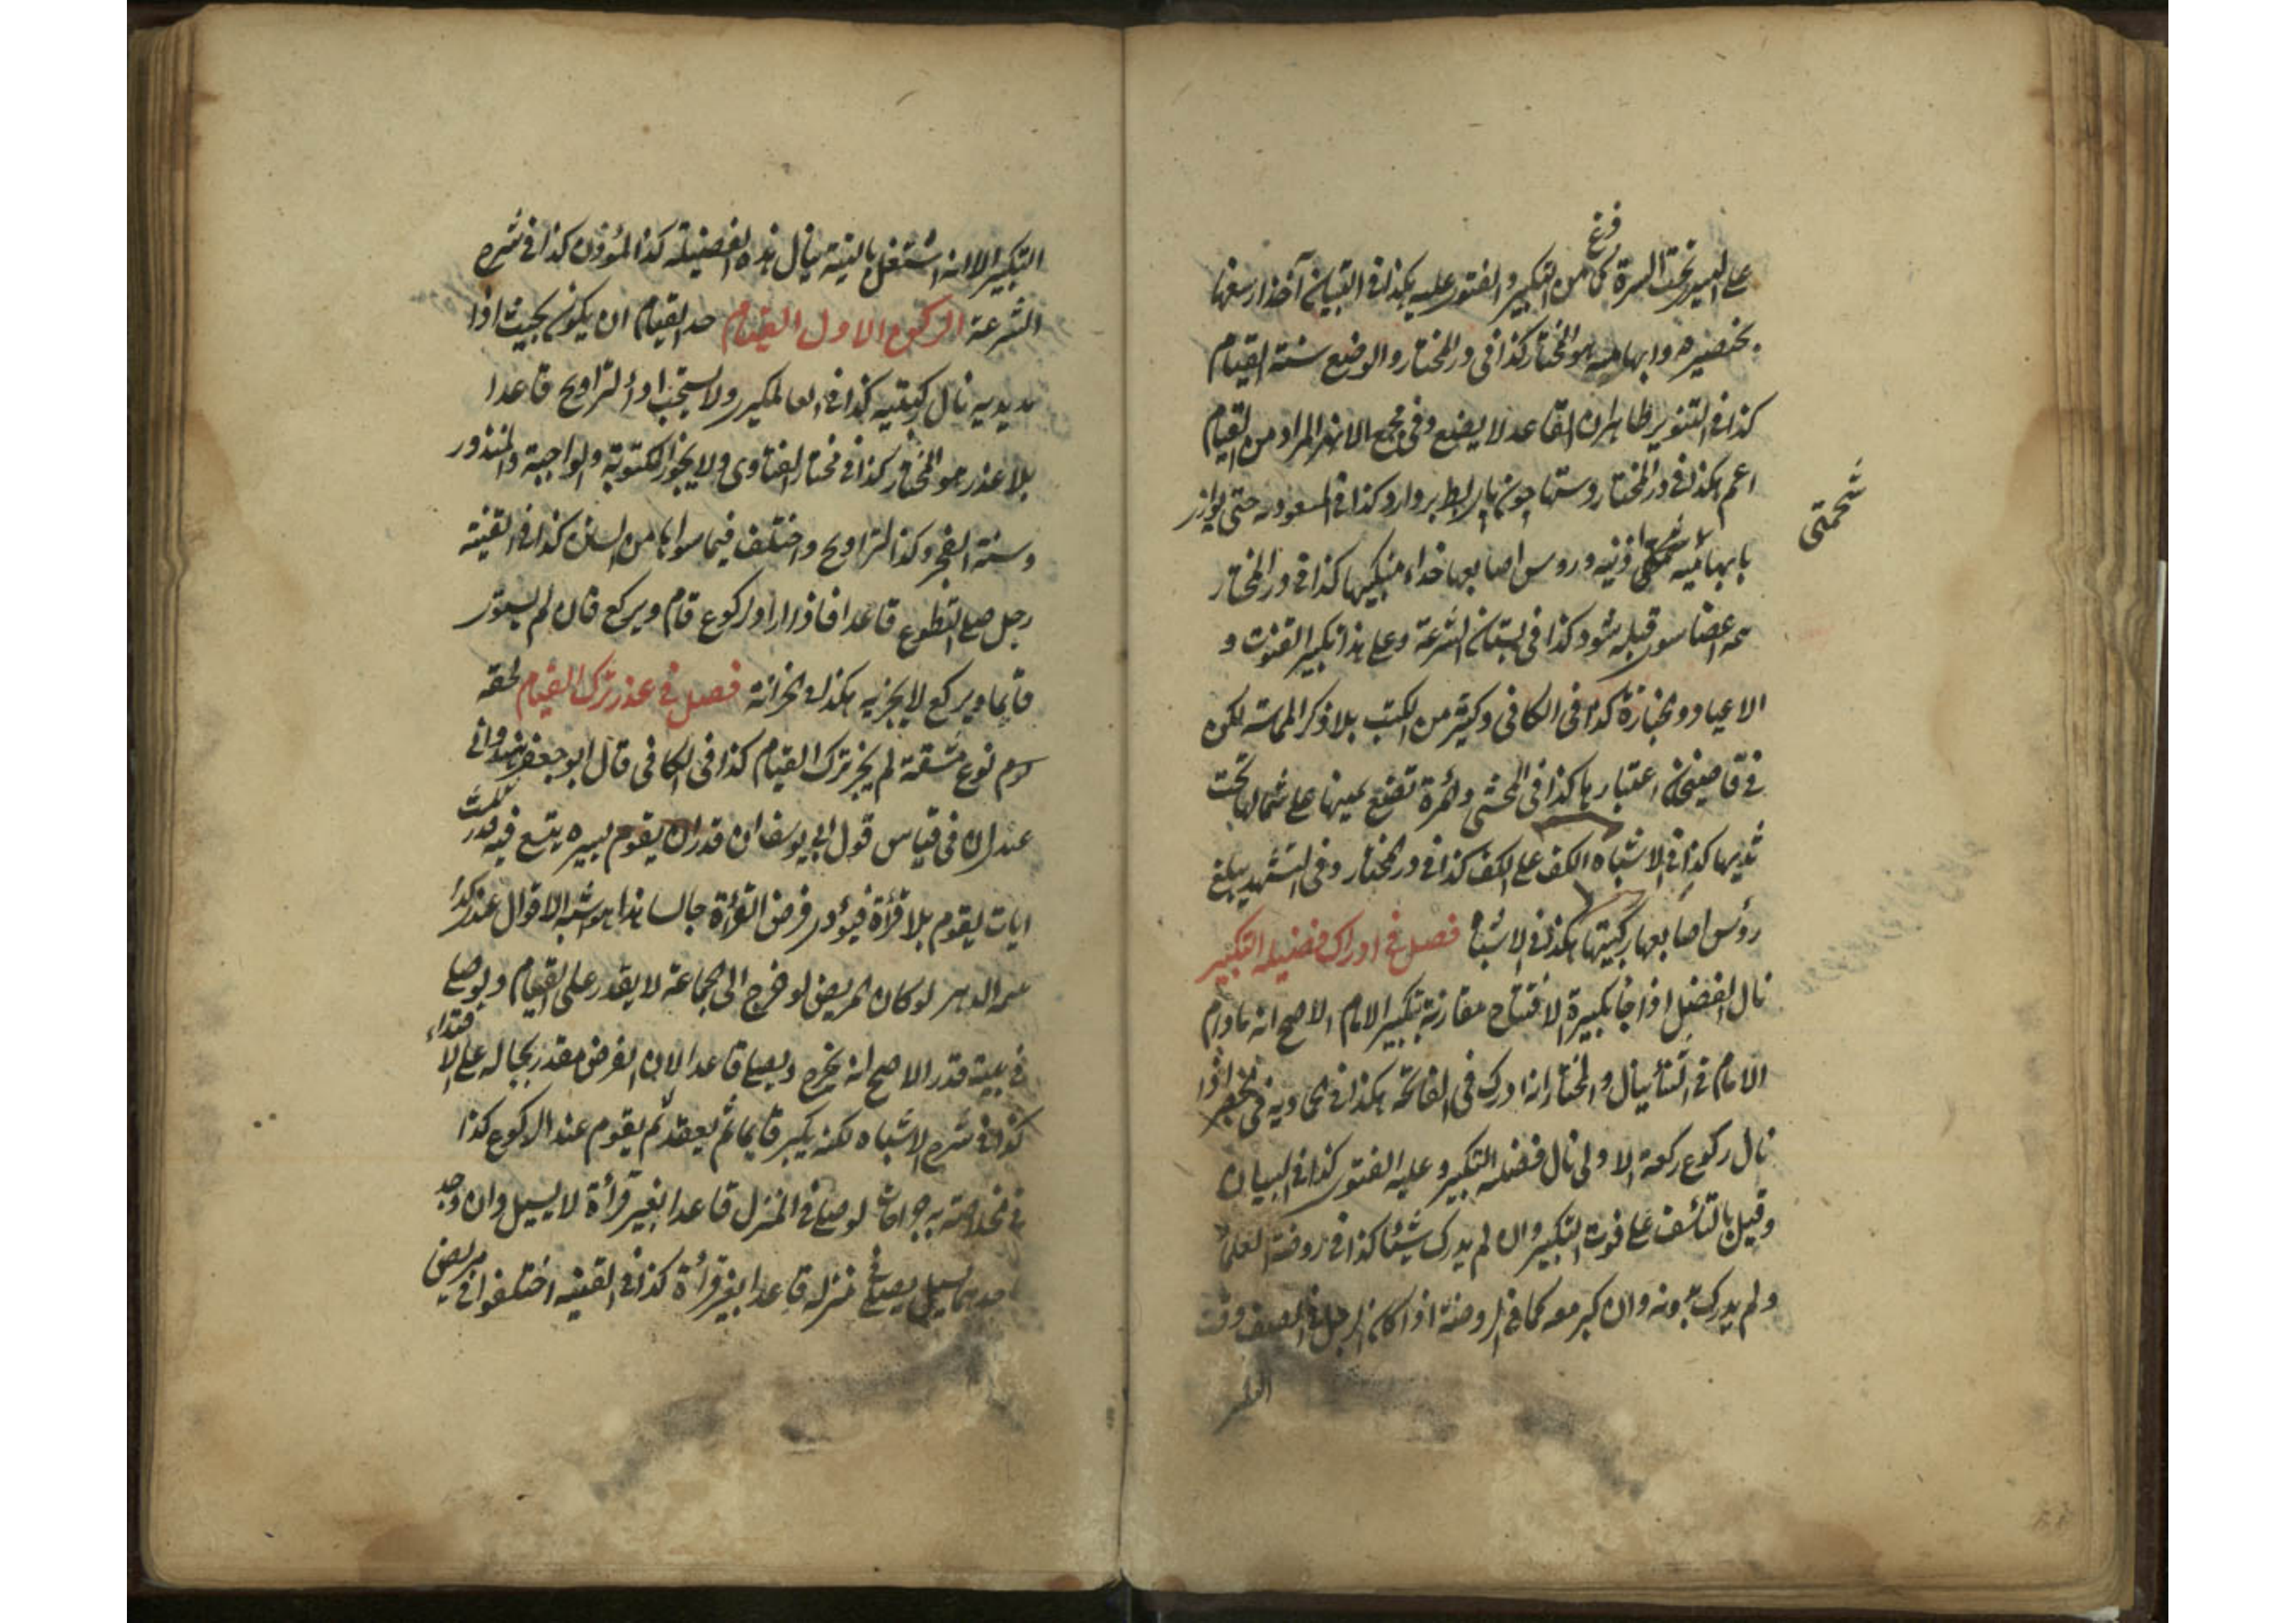 على اليسرى تحت السرة كما فرغ من التكبير والفتوى عليه هكذا فى التبيان آخذا رسغها
بخنصره وابهامه هو المختار كذا فى در المختار والوضع سنة القيام
كذا فى التنوير ظاهره ان القاعد لا يضع وفى مجمع الانهر المراد من القيام
اعم هكذا فى در المختار ودستها چون بردارد وكذا فى المسعوديه حتى يوازى
بابهاميه شحمتى اذنيه وروس اصابعها حذاء منكبيها كذا فى در المختار
شحمتى
همه اعضا سوى قبله شود كذا فى بستان الشرعة وعلى هذا تكبير القنوت و
الاعياد والجنازة كذا فى الكافى وكثير من الكتب بلا ذكر المماسة لكن
فى قاضيخان اعتبارها كذا فى المحشى والمرة تضع يمينها على شمالها تحت
ثدييها كذا فى الاشباه الكف على الكف كذا فى در المختار وفى التشهد يبلغ
رؤس اصابعها ركبتيها هكذا فى الاشباه فصل فى ادراك فضيله التكبير
نال الفضل اذا جا بتكبيرة الافتتاح مقارنة بتكبير الامام الاصح انه مادام
الامام فى الثنأ ينال والمختار انه ادرك فى الفاتحة هكذا فى الحاديه فى اذا
نال ركوع ركعة الاولى نال فضله التكبير وعليه الفتوى كذا فى البيان
وقيل بالتأسف على فوت التكبير وان لم يدرك شيئا كذا فى روضة العلما
ولم يدرك بدونه وان كبر معه كما فى الروضة اذا كان الرجل فى الصف وقت
التكبير الا انه اشتغل بالنية ينال هذه الفضيلة كذا المؤذن كذا فى شرح
الشرعة الركن الاول القيام حد القيام ان يكون بحيث اذا
مد يديه نال ركبتيه كذا فى العالمكيرى ولا يستحب اداء التراويح قاعدا
بلا عذر هو المختار كذا فى مختار الفتاوى ولا يجوز المكتوبة والواجبة والمنذور
وسنة الفجر وكذا التراويح واختلف فيما سواها من السنن كذا فى القنية
رجل صلى التطوع قاعدا فاذا اراد الركوع قام ويركع قال لم يستو
قايما ويركع لا يجزيه هكذا فى الخزانة فصل فى عذر ترك القيام لحقه
نوع مشقة لم يجز ترك القيام كذا فى الكافى قال ابو جعفر هندوانى
عندى ان فى قياس قول ابى يوسف ان قدر ان يقوم يسيره يتسع فيه قدر ثلث
ايات ليقوم بلا قرأة فيؤدى فرض القرأة جالسا هذا هو اشبه الاقوال عندى كذا
الدهر لو كان المريض لو خرج الى الجماعة لا يقدر على القيام ولو صلى
فى بيته قدر الاصح انه يخرج ويصلى قاعدا لان الفرض مقدر بحاله على الاقتداء
كذا فى شرح الاشباه لكنه يكبر قايما ثم يقعد ثم يقوم عند الركوع كذا
فى الخلاصة به جراحات لو صلى فى المنزل قاعدا بغير قرأة لا يسيل وان وجد
يسيل يصلى فى منزله قاعدا بغير قرأة كذا فى القنيه اختلفوا فى مريض